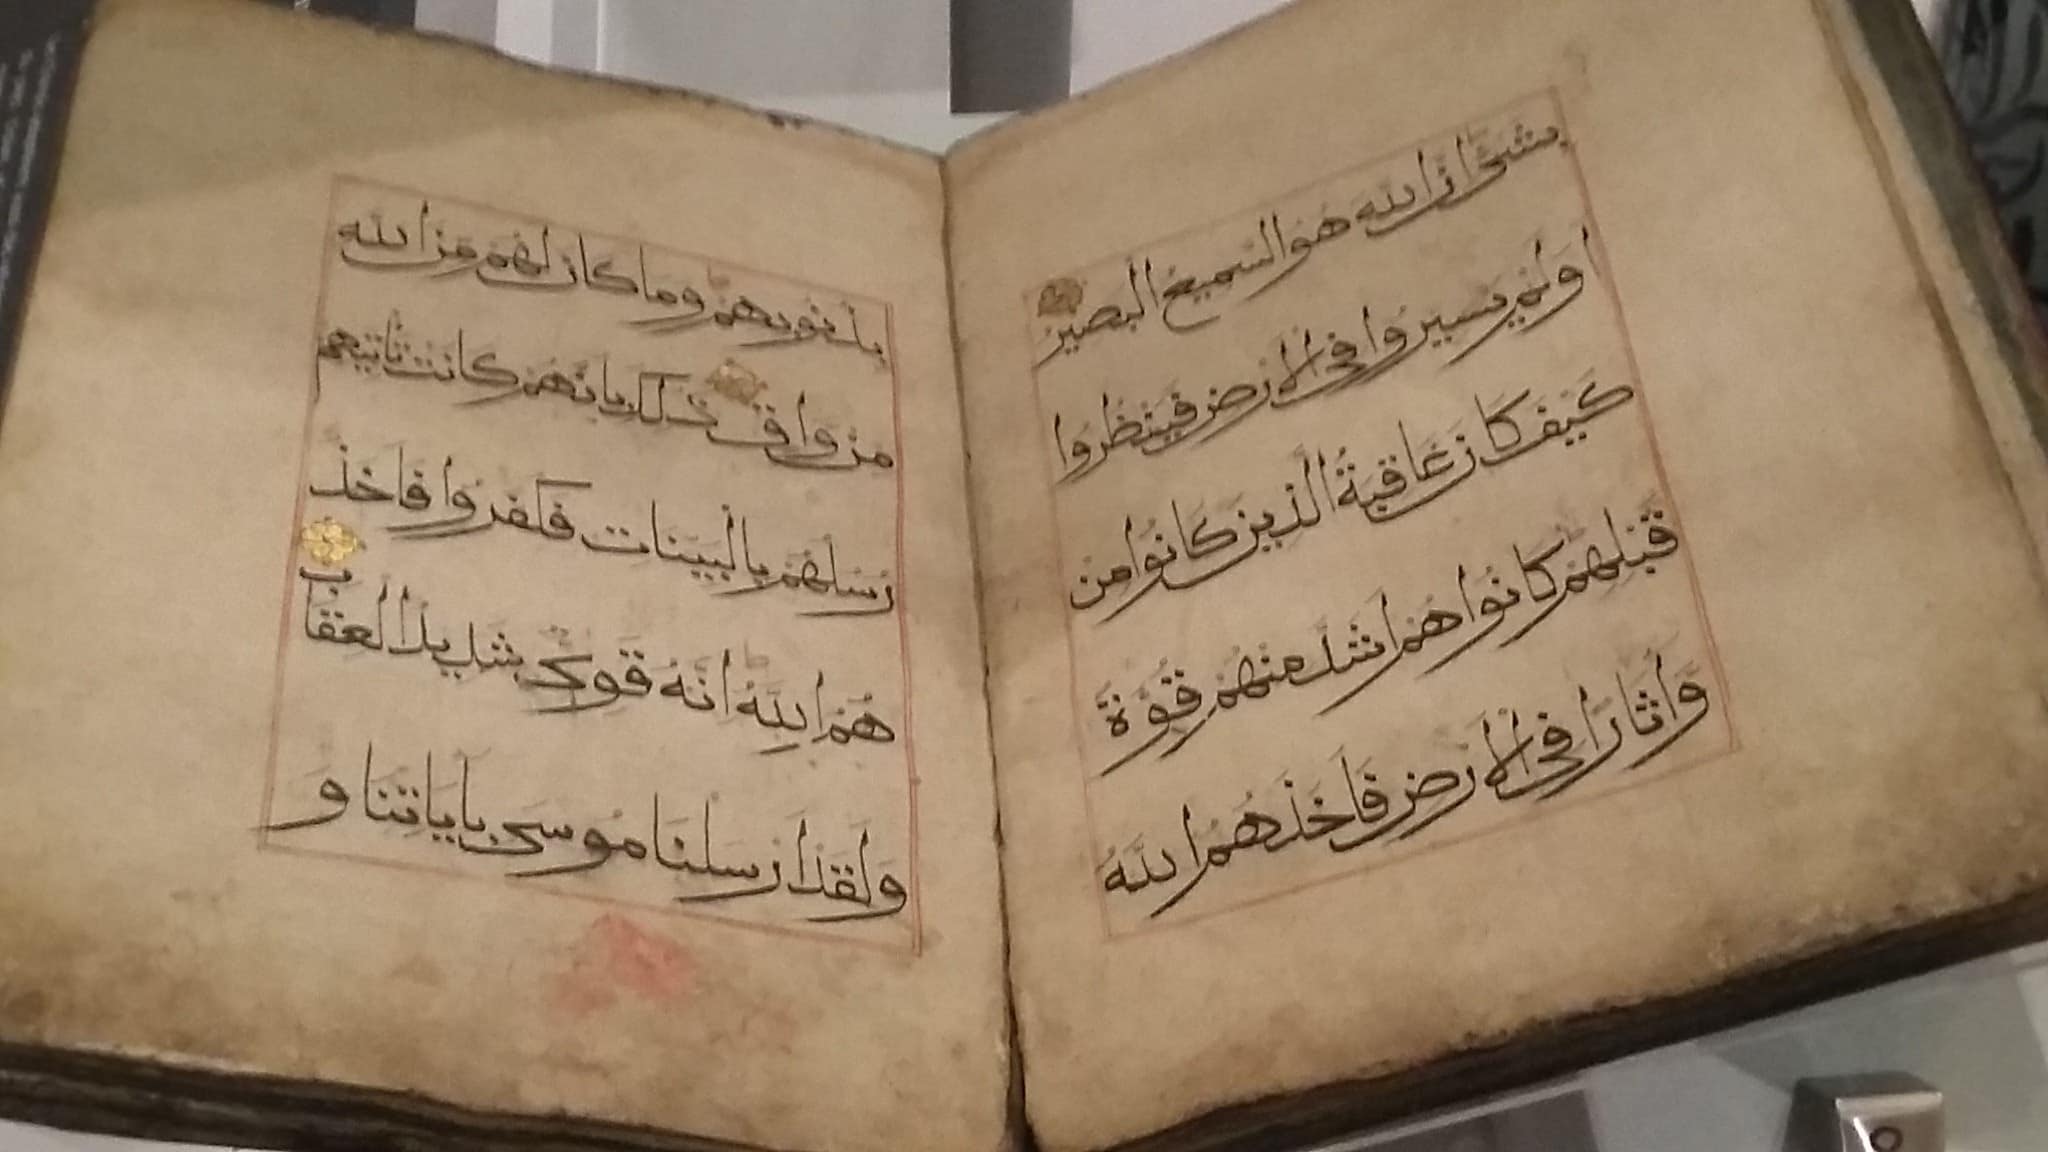 بشئ ان الله هو السميع البصير
اولم يسيروا فى الارض فينظروا
كيف كان عاقبة الذين كانوا من
قبلهم كانوا هم اشد منهم قوة
واثارا فى الارض فاخذهم الله
بذنوبهم وما كان لهم من الله
من واق ذلك بانهم كانت تاتيهم
رسلهم بالبينات فكفروا فاخذ
هم الله انه قوى شديد العقاب
ولقد ارسلنا موسى باياتنا و